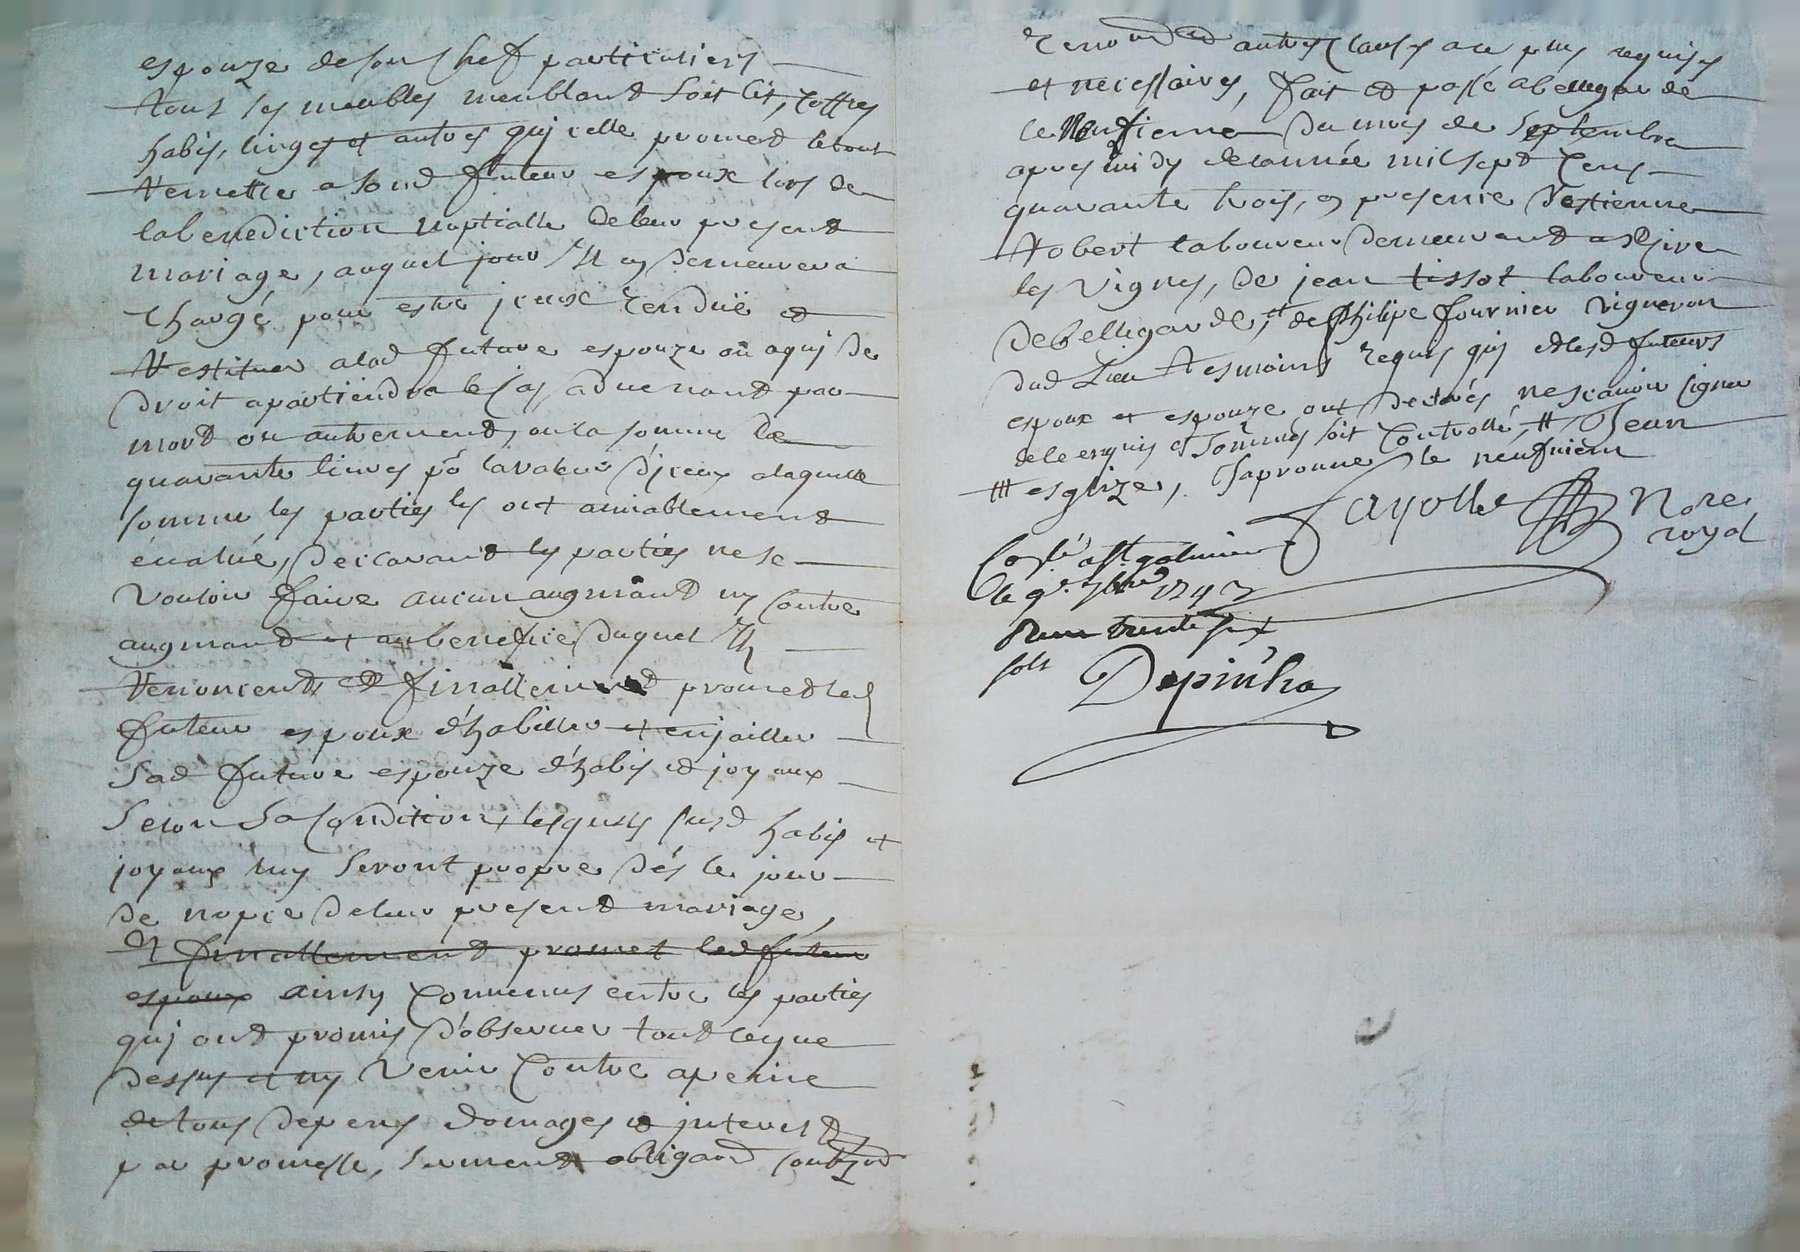 espouze de son chef particuliers
tous ses meubles meublant soit lit, coffres
habis, linges et autres qu'icelle promed le tout
remettre a sond futeur espoux lors de
la benediction nuptialle de leur present
mariage, auquel jour Il en demeurera
chargé pour estre iceux rendüe et
restituer a lad future espouze ou a qui de
droit apartiendra le cas aduenand par
mord ou autremend, ou la somme de
quarante liures pō la valeur d'iceux a laquelle
somme les parties les ont amiablemend
éualué, declarand les parties ne se
vouloir faire aucun augmānd ny contre
augmand et au benefice duquel Ils
renoncends et finallemend promed led
futeur espoux d'habiller et enjailler
sad future espouze d'habis et joyaux
selon sa condition, lesquels susd habis et
joyaux luy seront propre dés le jour
de nopce de leur presend mariage,
Et finallemend promet led futeur
espoux ainsy conuenus entre les parties
qui ond promis d'obseruer toud ce que
dessus et ny venir contre a peine
de tous depens domages et interest
par promesse, sermend obligaōd soubzōd
renonōd et autres clauses a ce plus requises
et necessaires, fait et passé a bellegarde
le neufieme du mois de septembre
apres midy de l'année mil sept cens
quarante trois, en presence d'estienne
robert laboureur demeurand a St Cire
les vignes, de jean tissot laboureur
de bellegarde, et de philipe fournier vigneron
dud Lieu tesmoins requis qui et lesd futeurs
espoux et espouze ont declarés ne scauoir signer
de ce enquis et sommés soit controllé, # Jean
## esglize, J'aprouue le neufuiem
Fayolle Nore
royal
Conlé a St galmier
le 9e 7bre 1743
Reçu trente six
sols
Depinhac